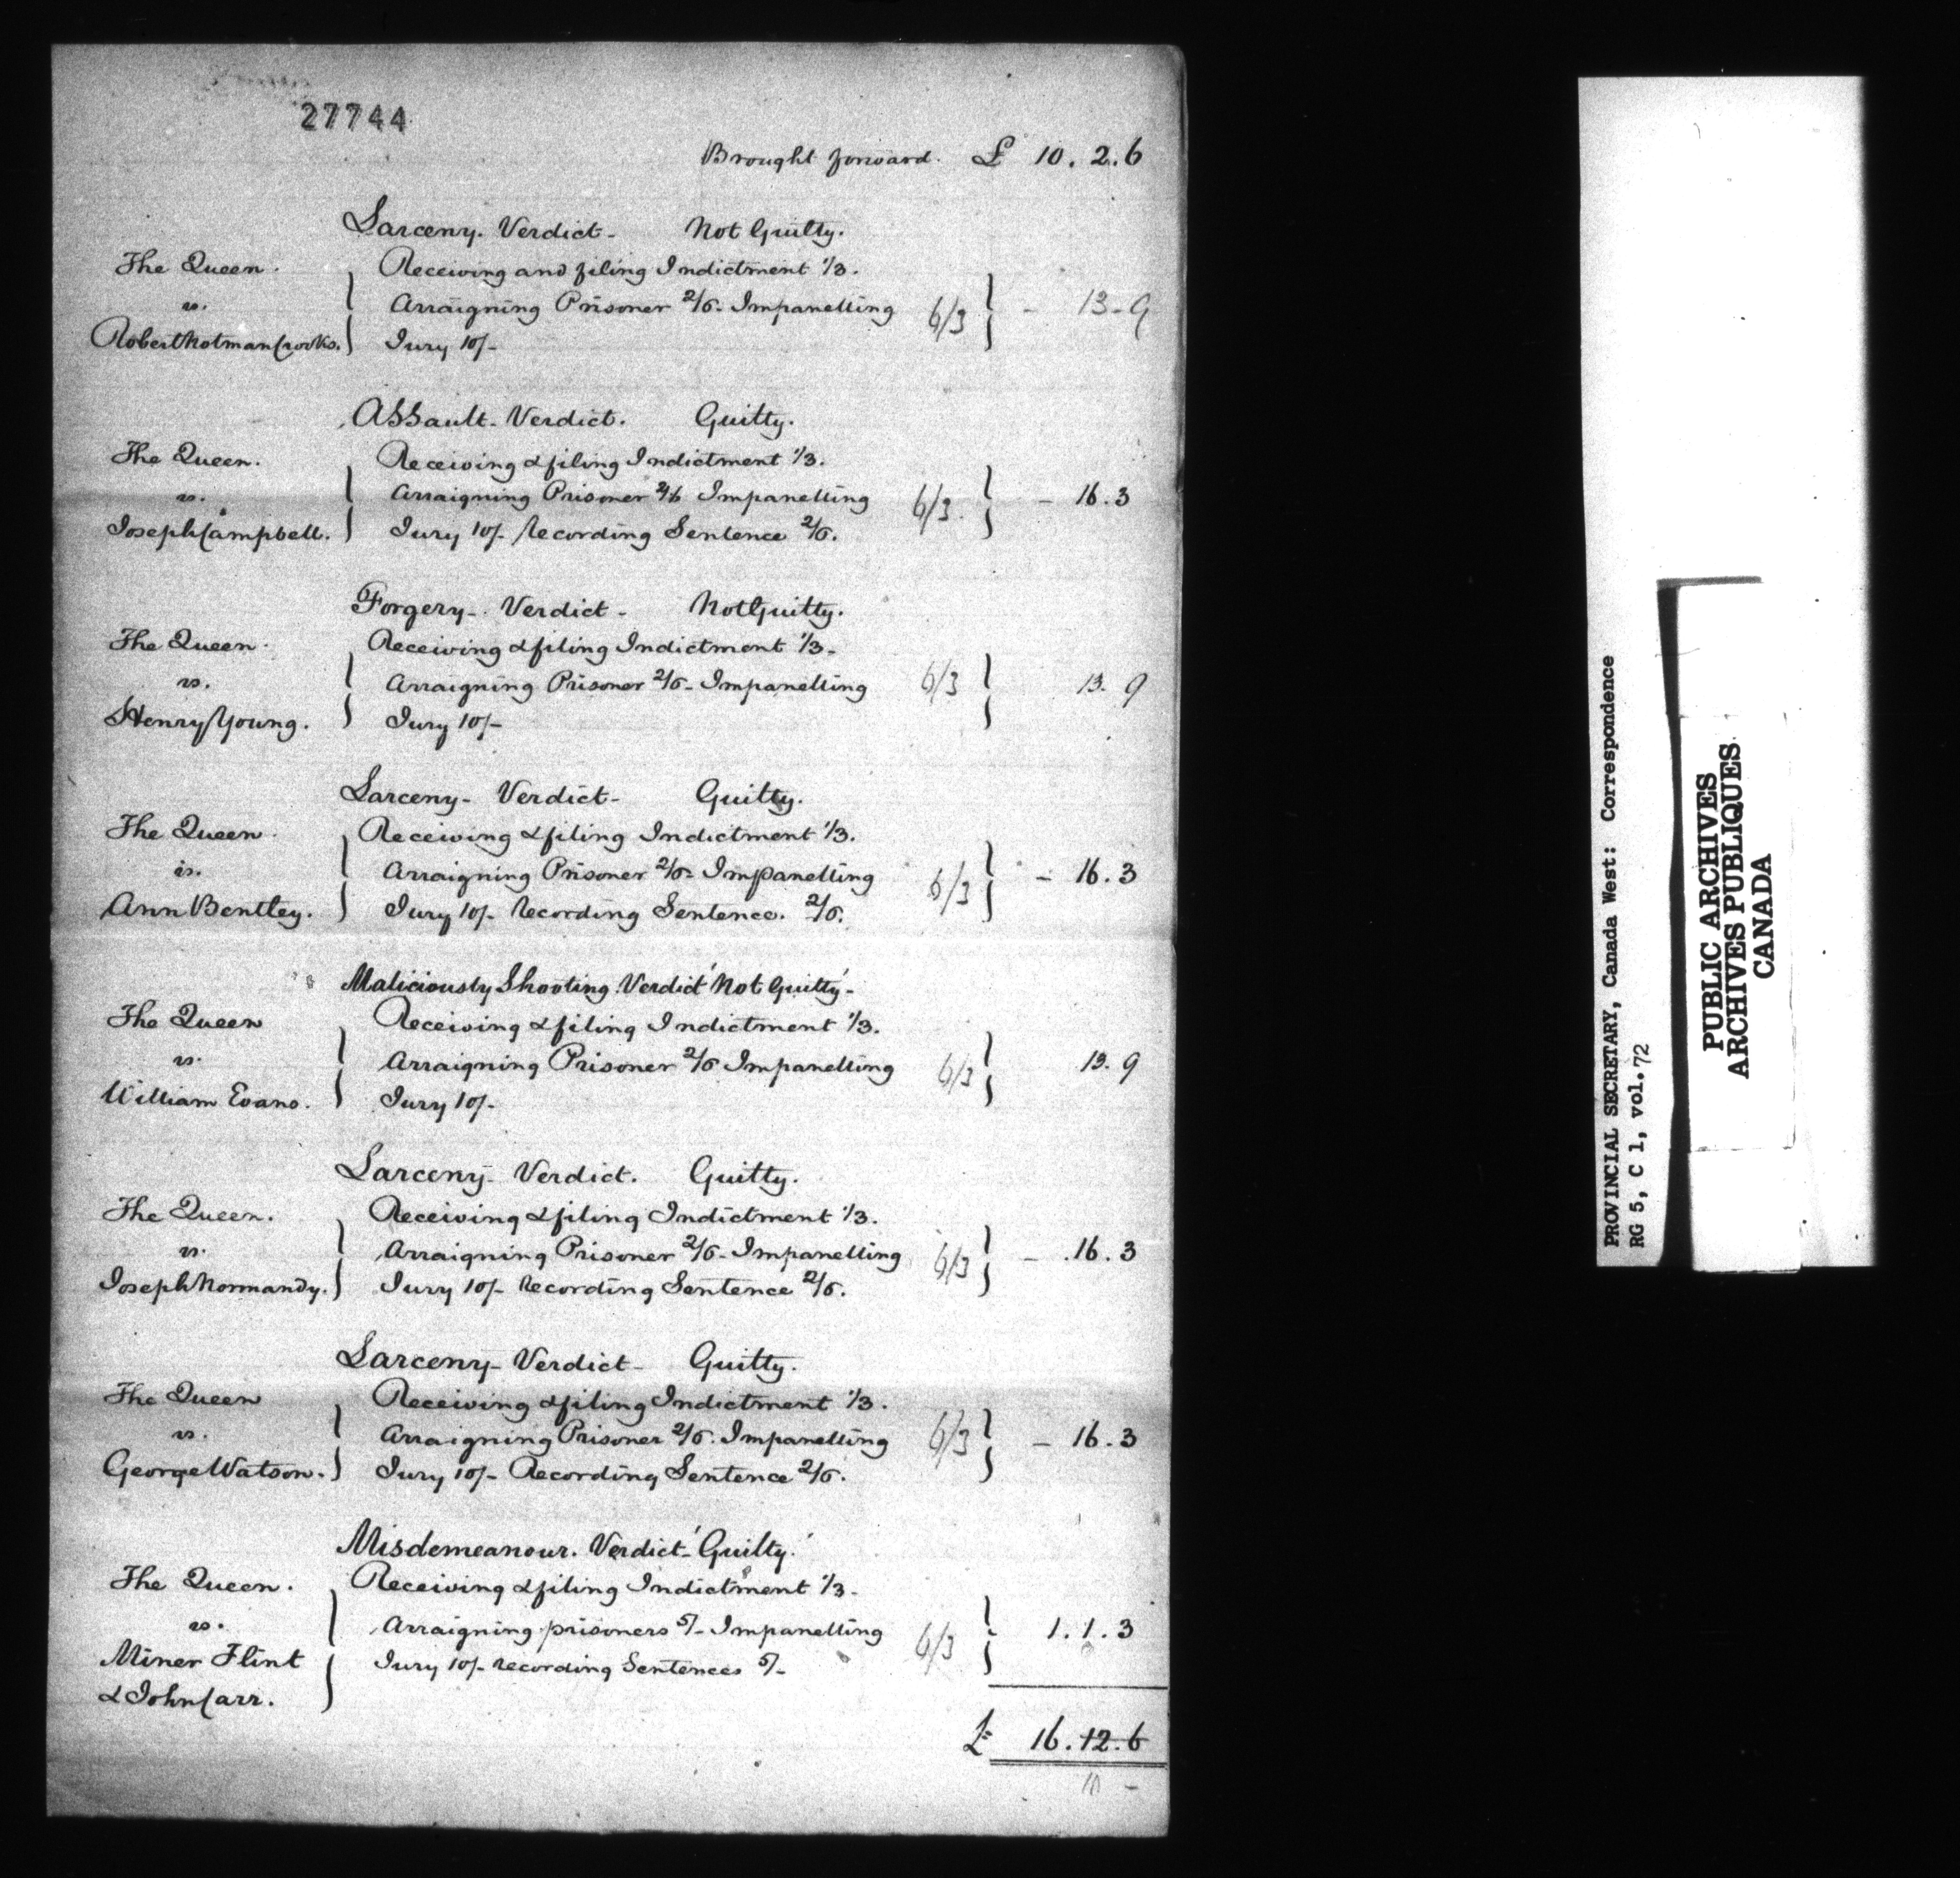 27744
Brought forward. £ 10. 2. 6
Larceny. Verdict- Not Guilty.
The Queen. Receiving and filing Indictment 1/3.
vs. Arraigning Prisoner 2/6- Impanelling 6/3 - 13-9
Robert Notman Crooks. Jury 10/-
Assault- Verdict. Guilty.
The Queen. Receiving & filing Indictment 1/3.
vs. Arraigning Prisoner 2/6 Impanelling 6/3. - 16.3
Joseph Campbell. Jury 10/- Recording Sentence 2/6.
Forgery-. Verdict- Not Guilty.
The Queen. Receiving & filing Indictment 1/3-
vs. Arraigning Prisoner 2/6- Impanelling 6/3 13. 9
Henry Young. Jury 10/-
Larceny- Verdict- Guilty.
The Queen. Receiving & filing Indictment 1/3.
vs. Arraigning Prisoner 2/6- Impanelling 6/3 - 16.3
Ann Bentley. Jury 10/- Recording Sentence. 2/6.
Maliciously Shooting. Verdict 'Not Guilty'-
The Queen Receiving & filing Indictment 1/3.
vs. Arraigning Prisoner 2/6 Impanelling 6/3 13. 9
William Evans. Jury 10/-
Larceny- Verdict. Guilty.
The Queen. Receiving & filing Indictment 1/3.
vs. Arraigning Prisoner 2/6- Impanelling 6/3 - .16.3
Joseph Normandy. Jury 10/- Recording Sentence 2/6.
Larceny- Verdict- Guilty.
The Queen Receiving & filing Indictment 1/3.
vs. Arraigning Prisoner 2/6. Impanelling 6/3 - 16.3
George Watson. Jury 10/- Recording Sentence 2/6.
Misdemeanour. Verdict-'Guilty.'
The Queen. Receiving & filing Indictment 1/3-
vs. Arraigning prisoners 5/- Impanelling 6/3 1. 1. 3
Miner Flint Jury 10/- recording Sentences 5/-
& John Carr.
£ 16. 12. 6
10 -
PROVINCIAL SECRETARY, Canada West: Correspondence
RG 5, C 1, vol. 72
PUBLIC ARCHIVES
ARCHIVES PUBLIQUES
CANADA